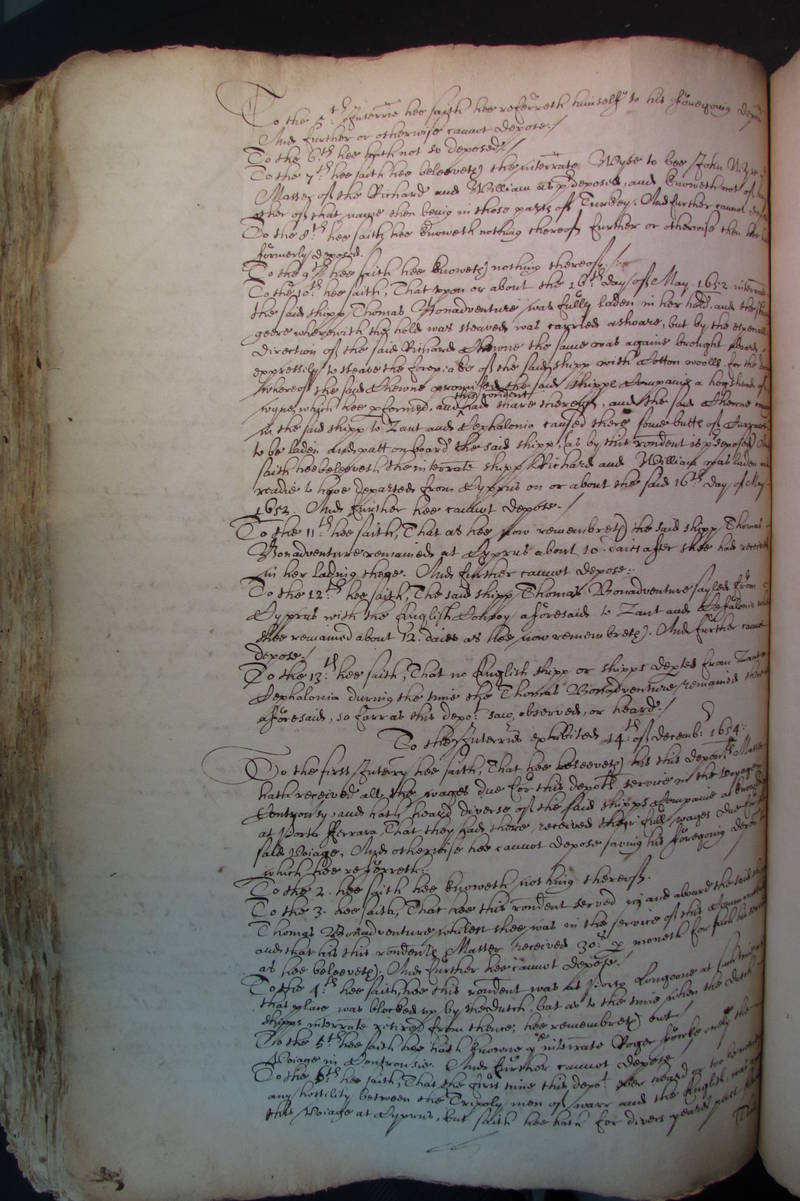 To the 5:th Interrie hee saith hee referreth himselfe to his foregoing depon
And further or otherwise cannot depose./
To the 6:th hee hath not so deposed:/
To the 7:th hee saith hee beleeveth the interrate Wyse to bee John Wyse
Master of the Richard and William as predeposed, and knoweth not of any
other of that name then being in those parts of Turkey. And further cannot depose
To the 8:th hee saith hee knoweth nothing thereof further or otherwise then hee hath
formerly deposed.
To the 9:th hee saith hee knoweth nothing thereof./
To the 10:th hee saith, That upon or about the 16:th day of May 1652 interrate
the said shipp Thomas Bonadventure was fully laden in her hold, and the
geere wherewith the hold was steaved was carried ashoare, but by the
direction of the said Richard Thewne the same was againe brought aboard
expressely to steave the of the said shipp with Cotton woolls, for the
whereof the said Thewne promised the said shipps Companie a hogshead of
wyne, which hee performed, and this rondent had share thereof, and the said Thewne
in the said shipp to Zant and Cephalonia caused there foure butts of Currans
to be laden and putt on board the said shipp, as by this rondent is predeposed And
saith hee beleeveth the interrate shipp Richard and William was laden and
readie to have departed from Cyprus on or about the said 16:th day of May
1652. And further hee cannot depose./
To the 11:th hee saith, That as hee now remembreth the said shipp Thomas
Bonadventure remained at Cyprus about 10 daies after shee had received
in her lading there. And further cannot depose:
To the 12:th hee saith, The said shipp Thomas Bonadventure sayled from
Cyprus with the English Convoy aforesaid to Zant and Cefalonia where
shee remained about 12: daies as hee now remembreth. And further cannot
depose./
To the 13:th hee saith, That no English shipp or shipps depted from Zant or
Cephalonia during the time the Thomas Bonadventure remained there
aforesaid, so farr as this depot saw, observed, or heard./
To the Interries exhibited 14:th of Decemb: 1654:
To the first Interry hee saith, That hee beleeveth his this deponts Master
hath received all the wages due for this depots service in the voyage in
Controversy, and hath heard diverse of the said shipps Companie
at Porto Ferrara, That they had there received their full wages due for the
said Voiage, And otherwise hee cannot depose saving his foregoing deposition
which hee referreth.
To the 2. hee saith hee knoweth nothing thereof.
To the 3. hee saith, That hee this rondent served in and aboard the said shipp
Thomas Bonadventure whilest shee was in the service of this Commonwealth
and that his this rondents Master received 30s p moneth for such his service
as hee beleeveth. And further hee cannot depose./
To the 4:th hee saith, hee this rondent was at Porto Longoone at such time as
that place was blocked up by the dutch, but as to the time when the dutch
shipps interrate retired from thence, hee remembreth not.
To the 5:th hee saith hee hath knowne ye interrate Roger only the
Voiage in Controversie. And further cannot depose
To the 6:th hee saith, That the first time this depot ever heard of
any hostility between the Tripoly men of warr and the English was
this Voiage at Cyprus, but saith hee hath for divers yeares past